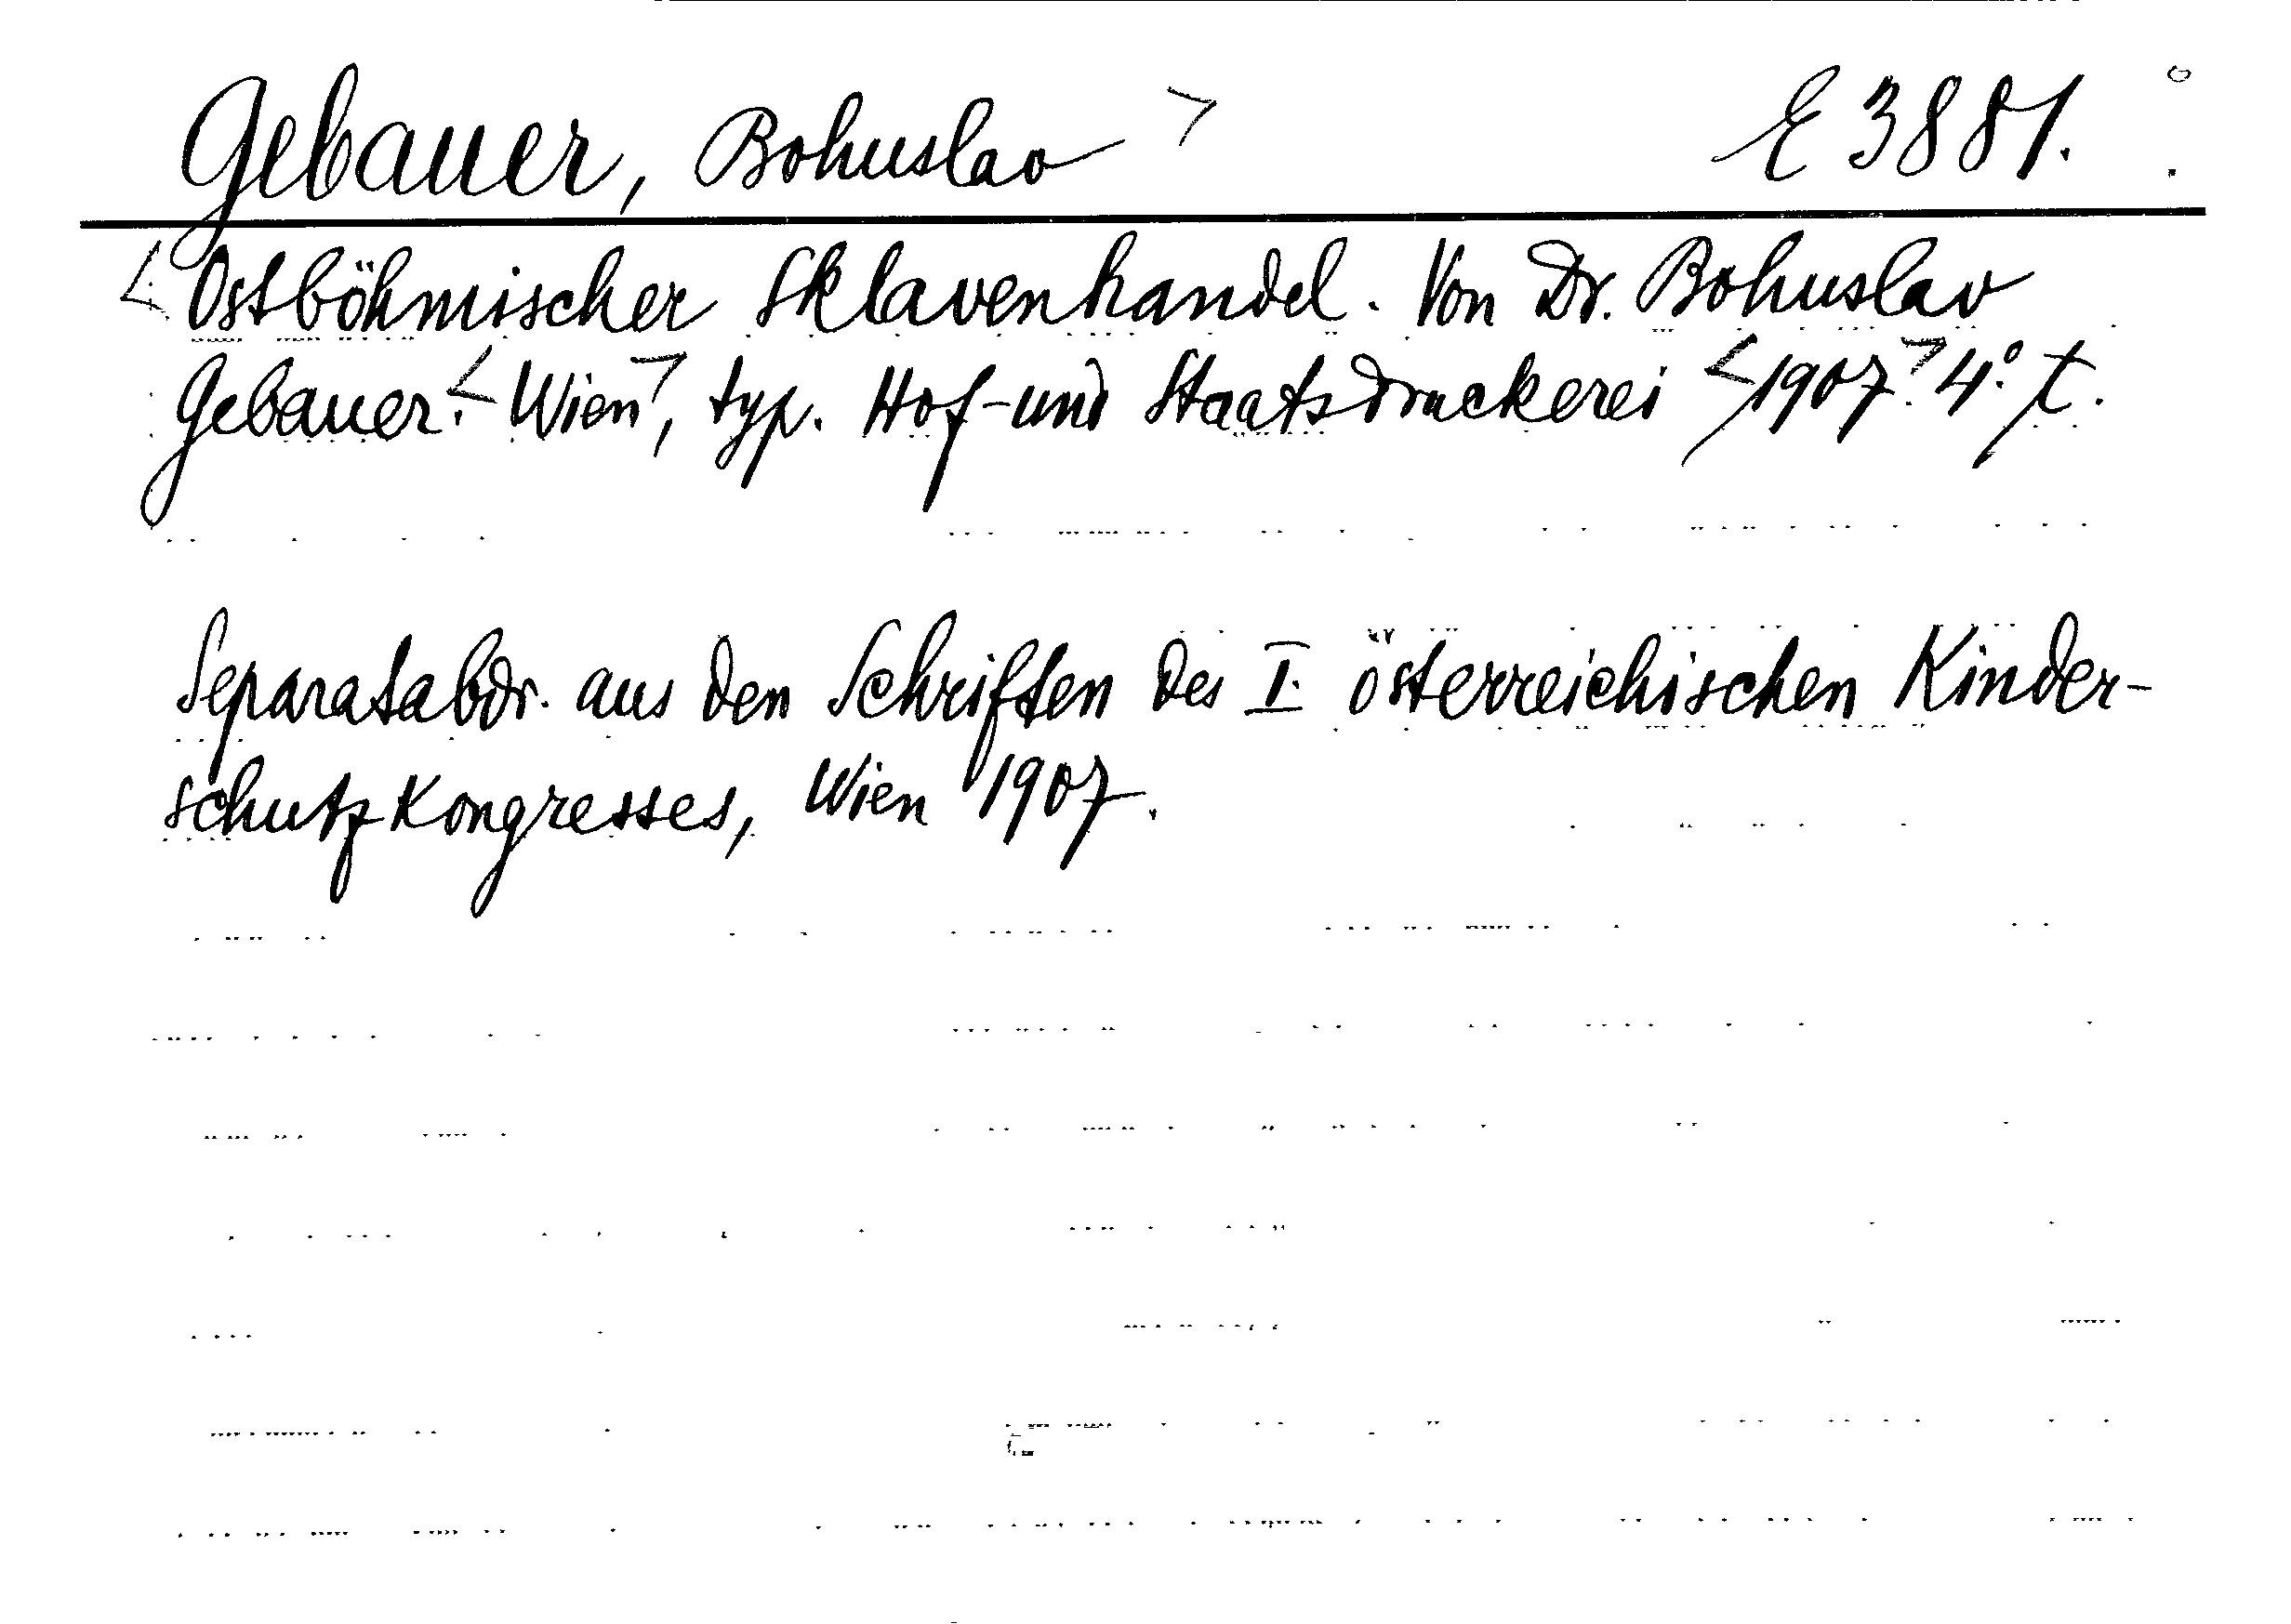 Gebauer, Bohuslav > E 3881.
< Ostböhmischer Sklavenhandel. Von Dr. Bohuslav
Gebauer. < Wien >, typ. Hof- und Staatsdruckerei < 1907. > 4°. t.
Separatabdr. aus den Schriften des I. österreichischen Kinder-
schutzkongresses, Wien 1907.